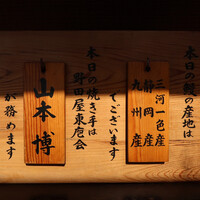 本日の鰻の産地は
三河一色産
静岡産
九州産
でございます
本日の焼き手は
野田屋東庖会
山本 博
が務めます